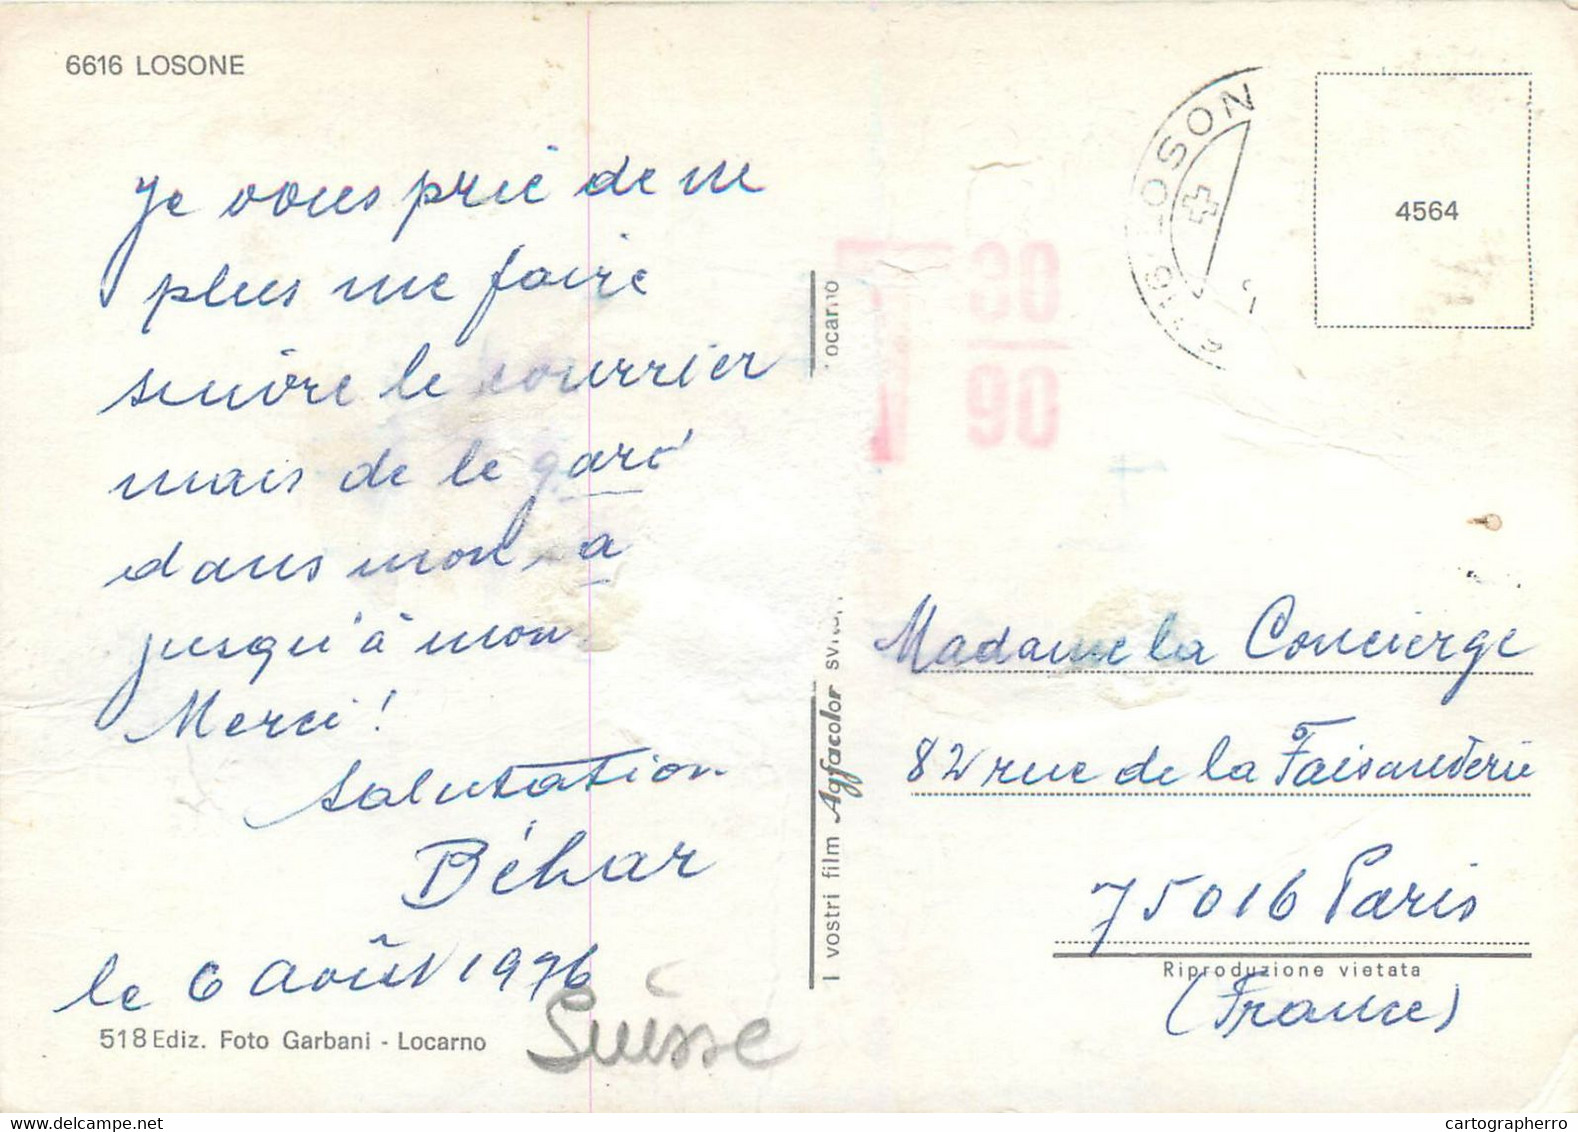 6616 LOSONE
Je vous prie de ne
plus me faire
suivre le courrier
mais de le gard
dans mon a
jusqu'à mon
Merci!
Salutation
Béhar
le 6 août 1976
518 Ediz. Foto Garbani - Locarno
Suisse
I vostri film Agfacolor
ocarno
30
90
LOSON
4564
Madame la Concierge
82 rue de la Faisanderie
75016 Paris
Riproduzione vietata
(France)
cartographerro